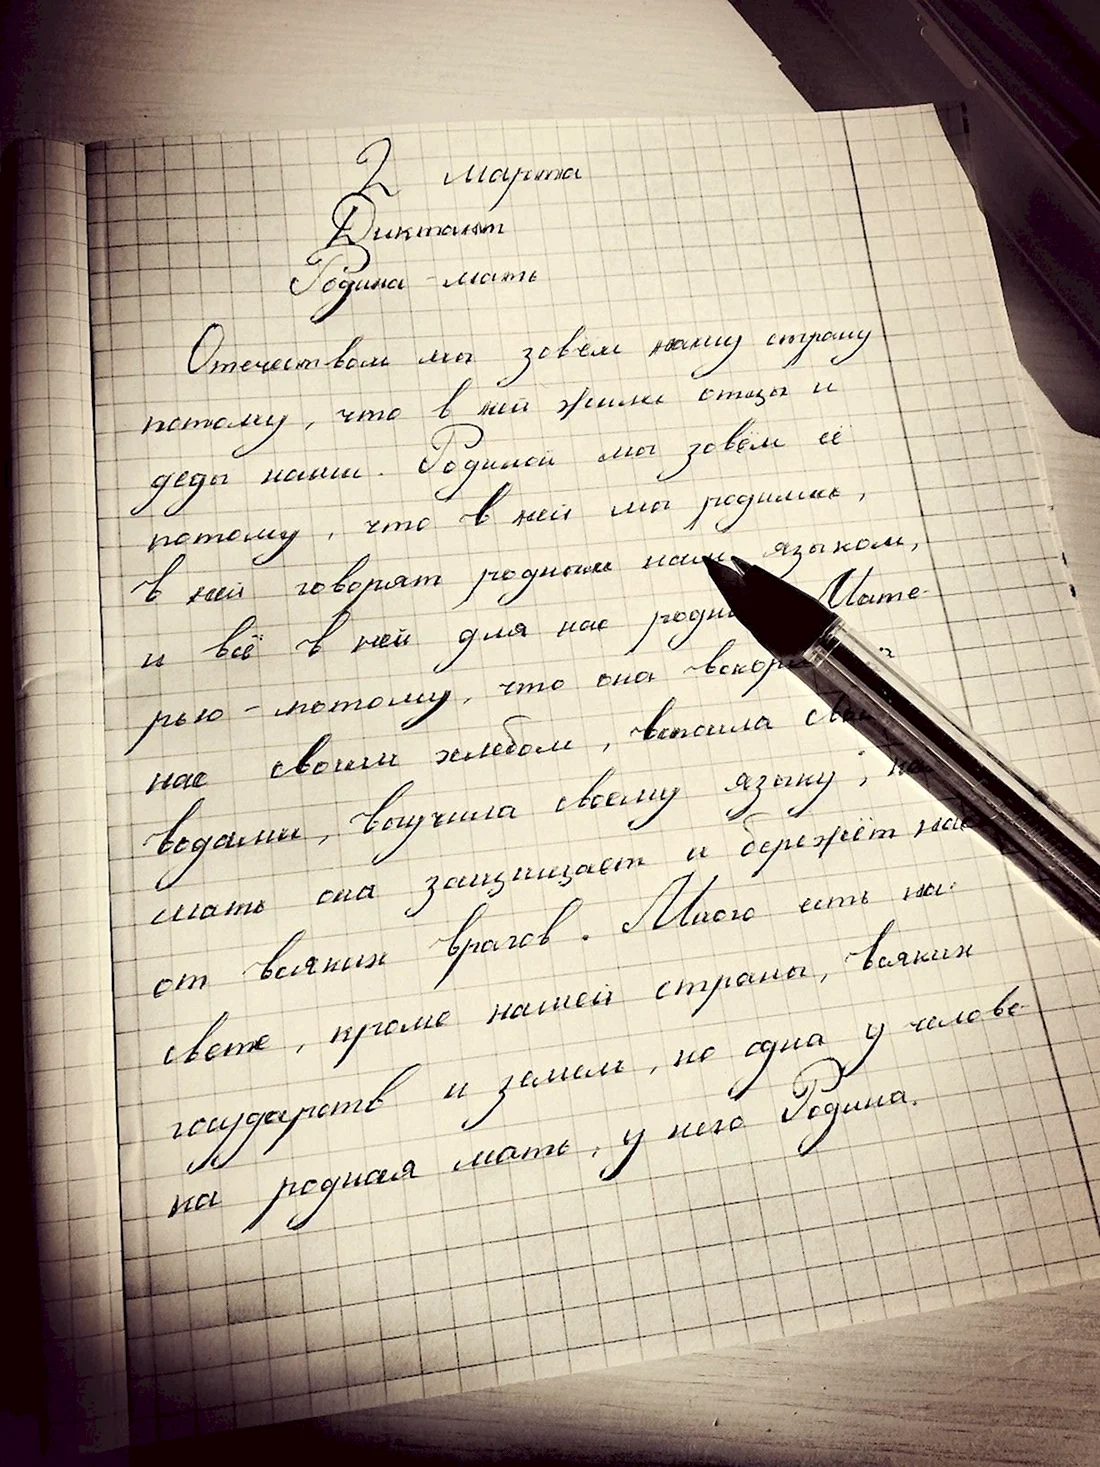 2 марта
Диктант
Родина-мать
Отечеством мы зовём нашу страну
потому, что в ней жили отцы и
деды наши. Родиной мы зовём её
потому, что в ней мы родились,
в ней говорят родным нам языком,
и всё в ней для нас Мате-
рью - потому, что она
нас своим хлебом, вспоила
водами, выучила своему языку;
мать она защищает и бережёт нас
от всяких врагов. Много есть на
свете, кроме нашей страны, всяких
государств и земель, но одна у челове-
ка родная мать, у него Родина.